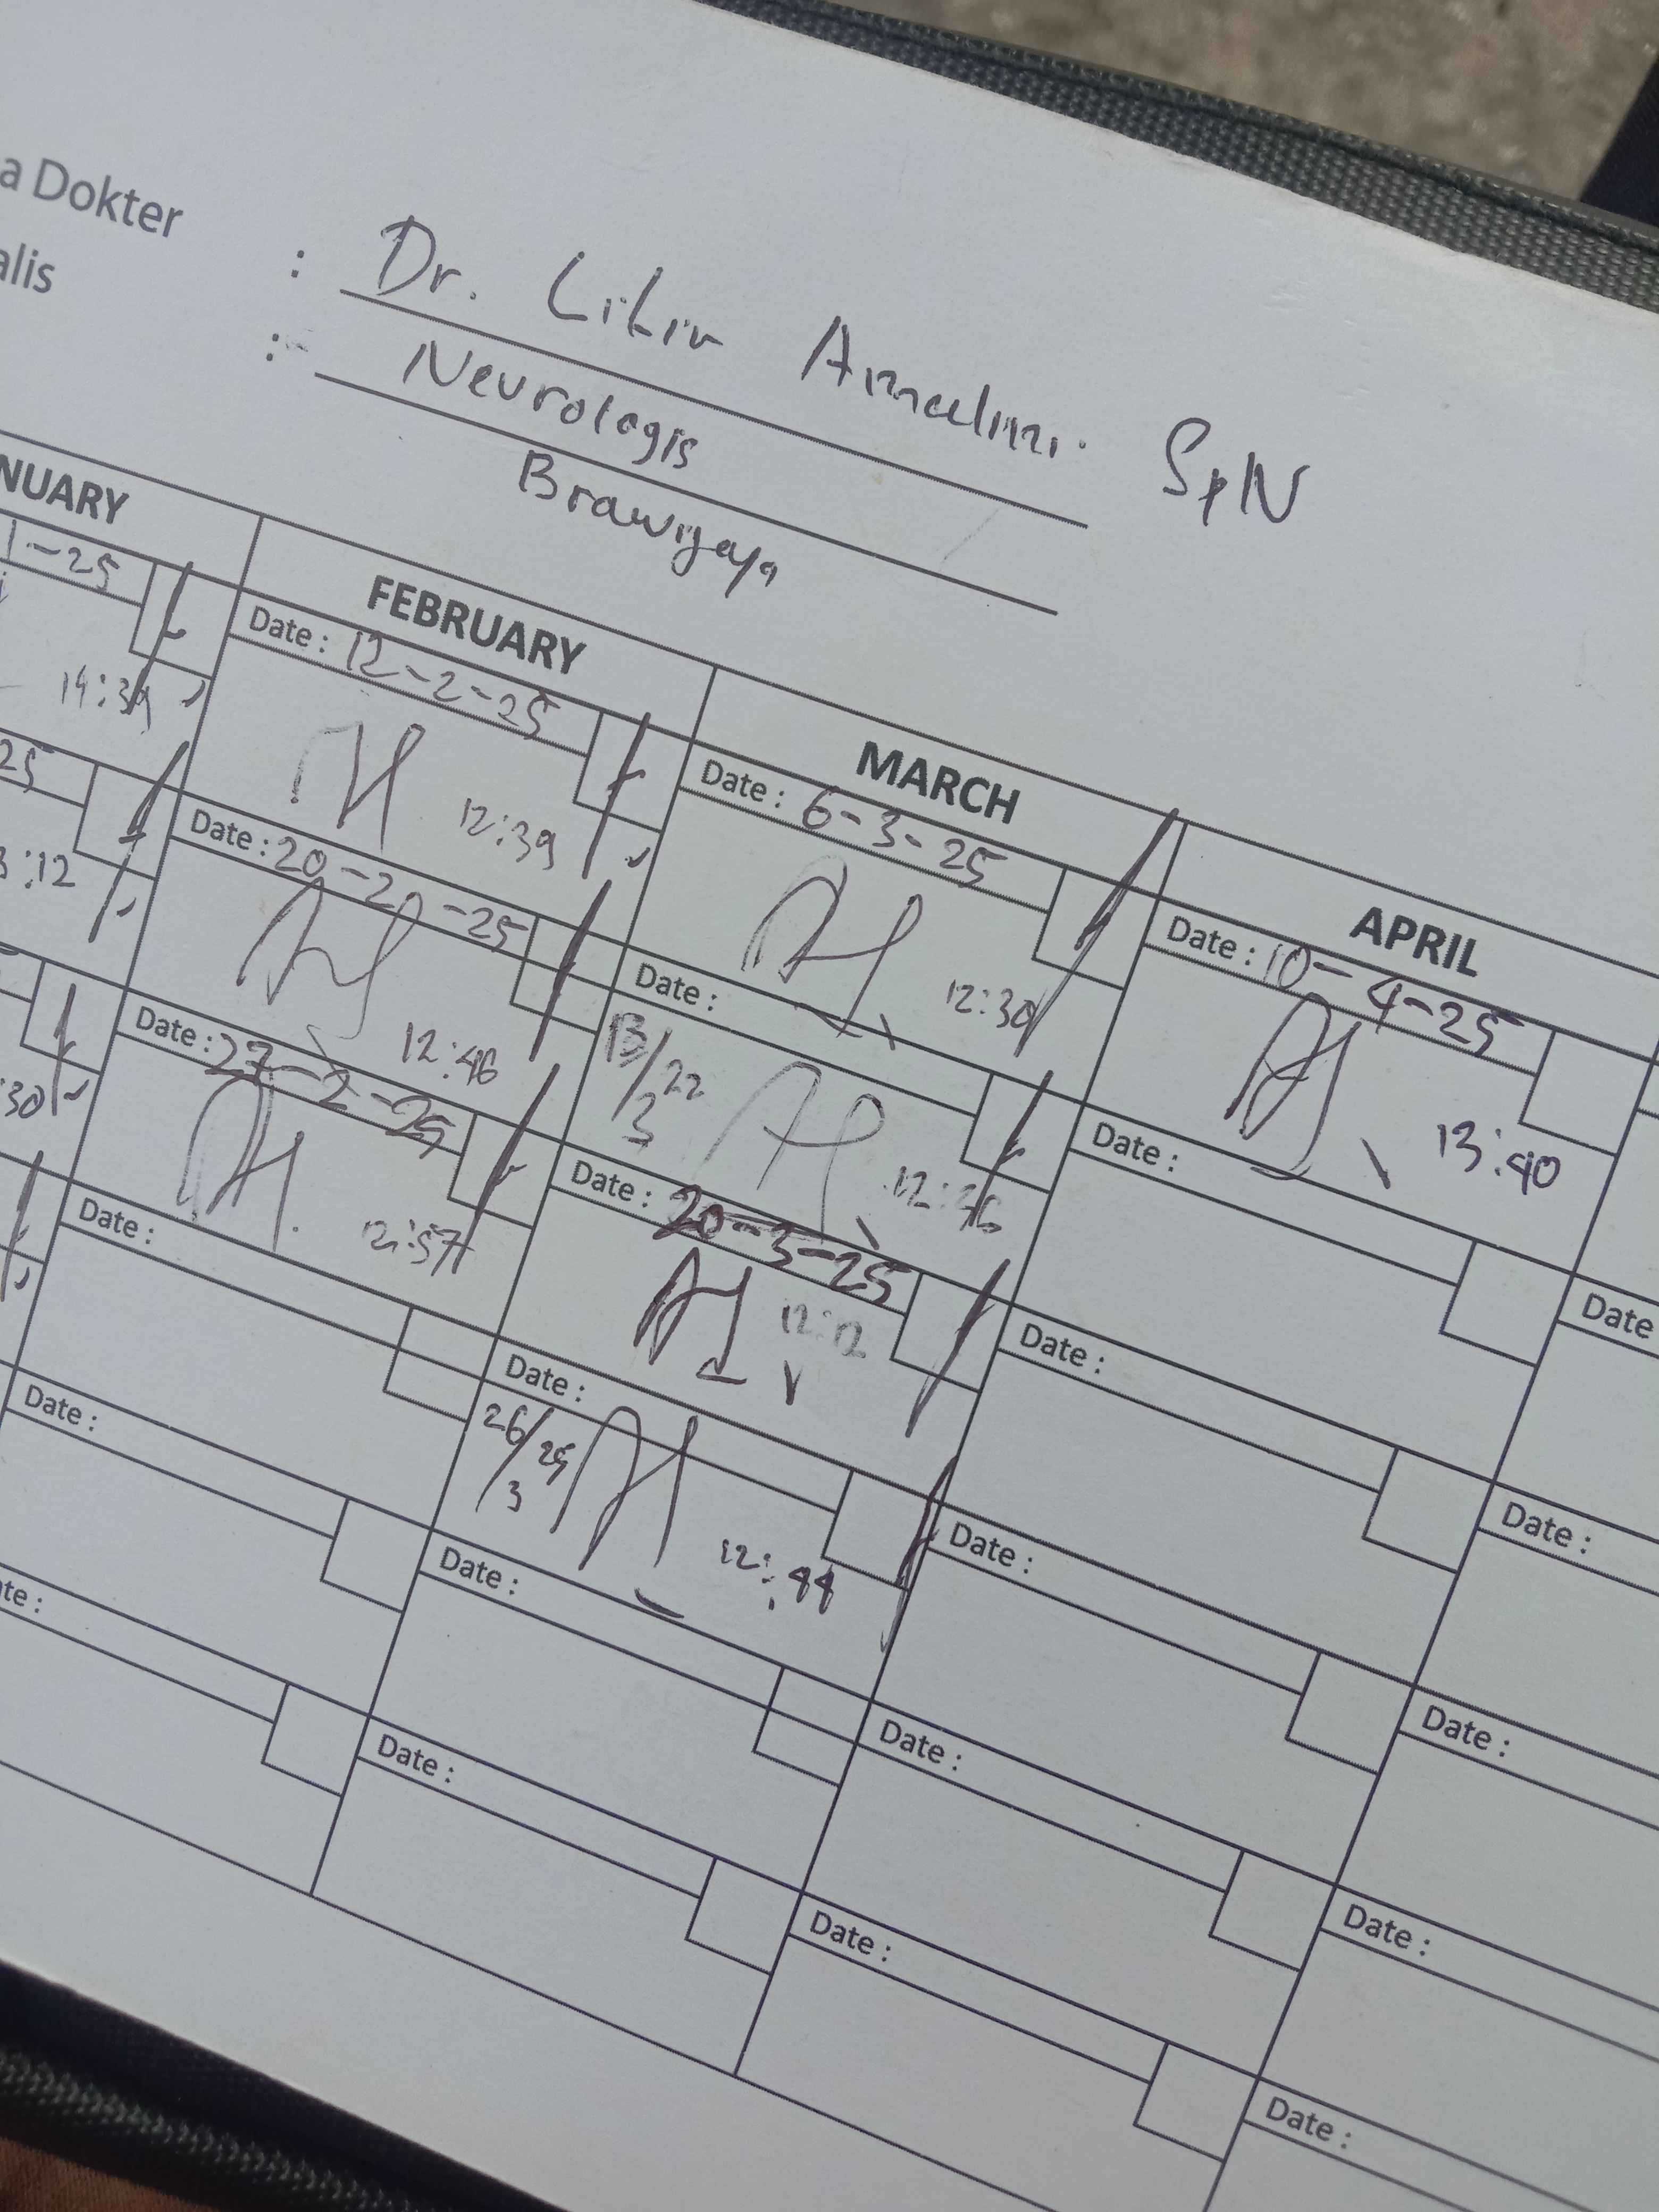 a Dokter : Dr. Amalini SpN
alis : Neurologis
Brawijaya
NUARY FEBRUARY MARCH APRIL
1-25 Date : 12-2-25 Date : 6-3-25 Date : 10-4-25
14:39 12:39 12:30 13:40
25 Date : 20-20-25 Date : 13/3 22 Date :
3:12 12:46
Date : 27-2-25 Date : 20-3-25 Date : Date
:30 12:57 12:12
Date : Date : 26/3 25 Date : Date :
12:44
Date : Date : Date : Date :
ate : Date : Date : Date :
Date :